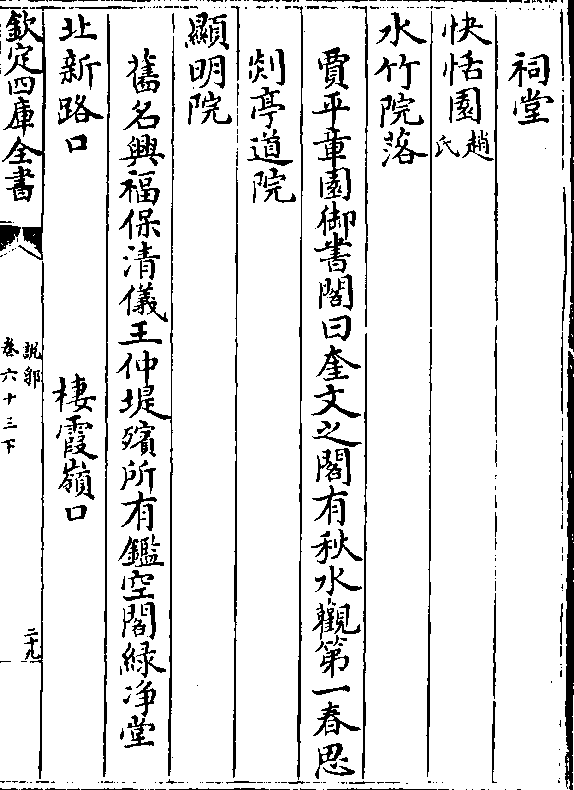 祠堂
快恬園趙氏
水竹院落
賈平章園御書閣曰奎文之閣有秋水觀第一春思
剡亭道院
顯明院
舊名興福保清儀王仲堤殯所有鑑空閣緑净堂
北新路口 棲霞嶺口
欽定四庫全書
説郛
卷六十三下
二十九